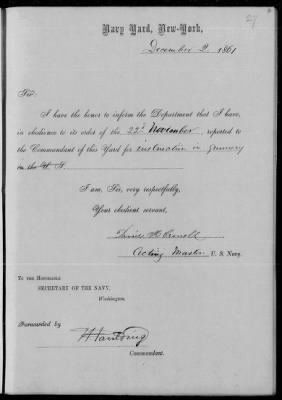 27
Navy Yard, New-York,
December 2, 1861
Sir:
I have the honor to inform the Department that I have,
in obedience to its order of the 22d November, reported to
the Commandant of this Yard for instruction in gunnery
in the
I am, Sir, very respectfully,
Your obedient servant,
Acting Master U. S. Navy.
To the Honorable
SECRETARY OF THE NAVY,
Washington.
Forwarded by
Commandant.